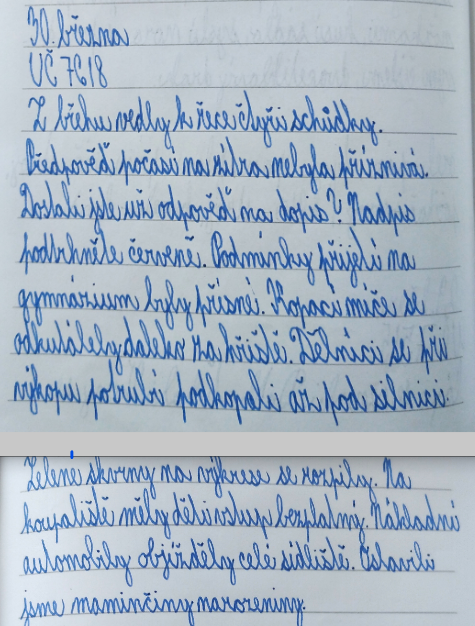 30. března
UČ 79/8
Z břehu vedly k řece čtyři schůdky.
Předpověď počasí na zítra nebyla příznivá.
Dostali jste už odpověď na dopis? Nadpis
podtrhněte červeně. Podmínky přijetí na
gymnázium byly přísné. Kopací míče se
odkutálely daleko za hřiště. Dělníci se při
výkopu potrubí podkopali až pod silnici.
Zelené skvrny na výkrese se rozpily. Na
koupališti měly děti vstup bezplatný. Nákladní
automobily objížděly celé sídliště. Oslavili
jsme maminčiny narozeniny.